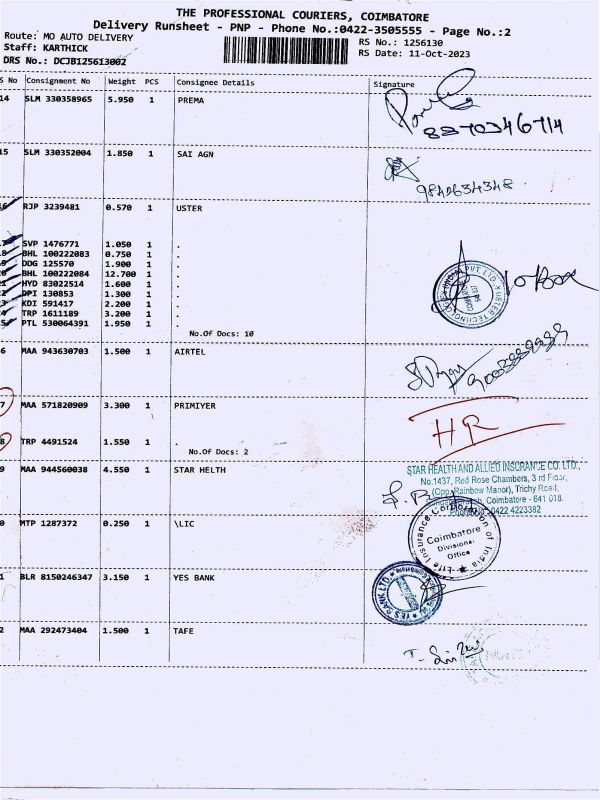 THE PROFESSIONAL COURIERS, COIMBATORE
Delivery Runsheet - PNP - Phone No.:0422-3505555 - Page No.:2
Route: MO AUTO DELIVERY
Staff: KARTHICK
DRS No.: DCJB125613002
RS No.: 1256130
RS Date: 11-Oct-2023
S No Consignment No Weight PCS Consignee Details Signature
14 SLM 330358965 5.950 1 PREMA
8870346714
15 SLM 330352004 1.850 1 SAI AGN
9842634348
RJP 3239481 0.570 1 USTER
SVP 1476771 1.050 1 .
BHL 100222083 0.750 1 .
DDG 125570 1.900 1 .
BHL 100222084 12.700 1 .
HYD 83022514 1.600 1 .
DPI 130853 1.300 1 .
KDI 591417 2.200 1 .
TRP 1611189 3.200 1 .
PTL 530064391 1.950 1 .
No.Of Docs: 10
6 MAA 943630703 1.500 1 AIRTEL
7 MAA 571820909 3.300 1 PRIMIYER
HR
8 TRP 4491524 1.550 1 .
No.Of Docs: 2
9 MAA 944560038 4.550 1 STAR HELTH
STAR HEALTH AND ALLIED INSURANCE CO. LTD.,
No.1437, Red Rose Chambers, 3 rd Floor,
(Opp. Rainbow Manor), Trichy Road,
Coimbatore - 641 018.
0422 4223382
0 MTP 1287372 0.250 1 \LIC
Life Insurance Corporation of India
Coimbatore
Divisional
Office
1 BLR 8150246347 3.150 1 YES BANK
YES BANK LTD.
2 MAA 292473404 1.500 1 TAFE